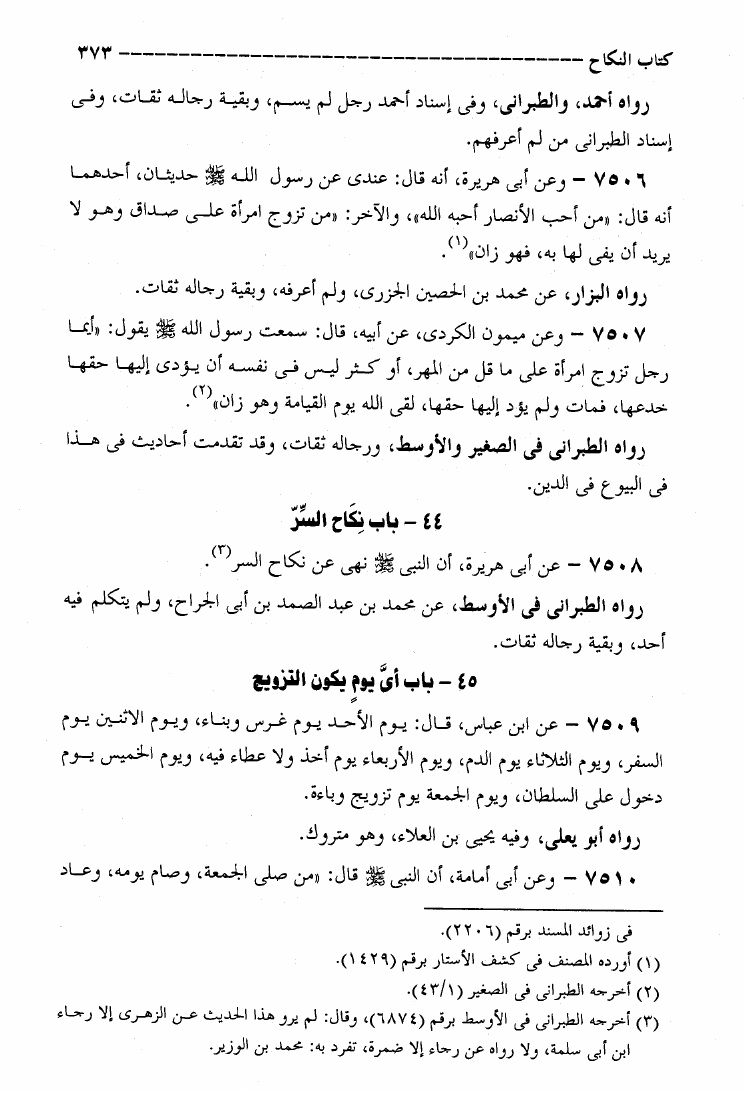 كتاب النكاح ــــــــــــــــــــــــــــــــــــــــــــــــــــــــ ٣٧٣
رواه أحمد، والطبرانى، وفى إسناد أحمد رجل لم يسم، وبقية رجاله ثقات، وفى
إسناد الطبرانى من لم أعرفهم.
٧٥٠٦ – وعن أبى هريرة، أنه قال: عندى عن رسول الله ﷺ حديثان، أحدهما
أنه قال: «من أحب الأنصار أحبه الله»، والآخر: «من تزوج امرأة على صداق وهو لا
يريد أن يفى لها به، فهو زان»(١).
رواه البزار، عن محمد بن الحصين الجزرى، ولم أعرفه، وبقية رجاله ثقات.
٧٥٠٧ – وعن ميمون الكردى، عن أبيه، قال: سمعت رسول الله ﷺ يقول: «أيما
رجل تزوج امرأة على ما قل من المهر، أو كثر ليس فى نفسه أن يؤدى إليها حقها
خدعها، فمات ولم يؤد إليها حقها، لقى الله يوم القيامة وهو زان»(٢).
رواه الطبرانى فى الصغير والأوسط، ورجاله ثقات، وقد تقدمت أحاديث فى هذا
فى البيوع فى الدين.
٤٤ – باب نِكَاح السِّرّ
٧٥٠٨ – عن أبى هريرة، أن النبى ﷺ نهى عن نكاح السر(٣).
رواه الطبرانى فى الأوسط، عن محمد بن عبد الصمد بن أبى الجراح، ولم يتكلم فيه
أحد، وبقية رجاله ثقات.
٤٥ – باب أىَّ يومٍ يكون التزويج
٧٥٠٩ – عن ابن عباس، قال: يوم الأحد يوم غرس وبناء، ويوم الاثنين يوم
السفر، ويوم الثلاثاء يوم الدم، ويوم الأربعاء يوم أخذ ولا عطاء فيه، ويوم الخميس يوم
دخول على السلطان، ويوم الجمعة يوم تزويج وباءة.
رواه أبو يعلى، وفيه يحيى بن العلاء، وهو متروك.
٧٥١٠ – وعن أبى أمامة، أن النبى ﷺ قال: «من صلى الجمعة، وصام يومه، وعاد
فى زوائد المسند برقم (٢٢٠٦).
(١) أورده المصنف فى كشف الأستار برقم (١٤٢٩).
(٢) أخرجه الطبرانى فى الصغير (٤٣/١).
(٣) أخرجه الطبرانى فى الأوسط برقم (٦٨٧٤)، وقال: لم يرو هذا الحديث عن الزهرى إلا رجاء
ابن أبى سلمة، ولا رواه عن رجاء إلا ضمرة، تفرد به: محمد بن الوزير.